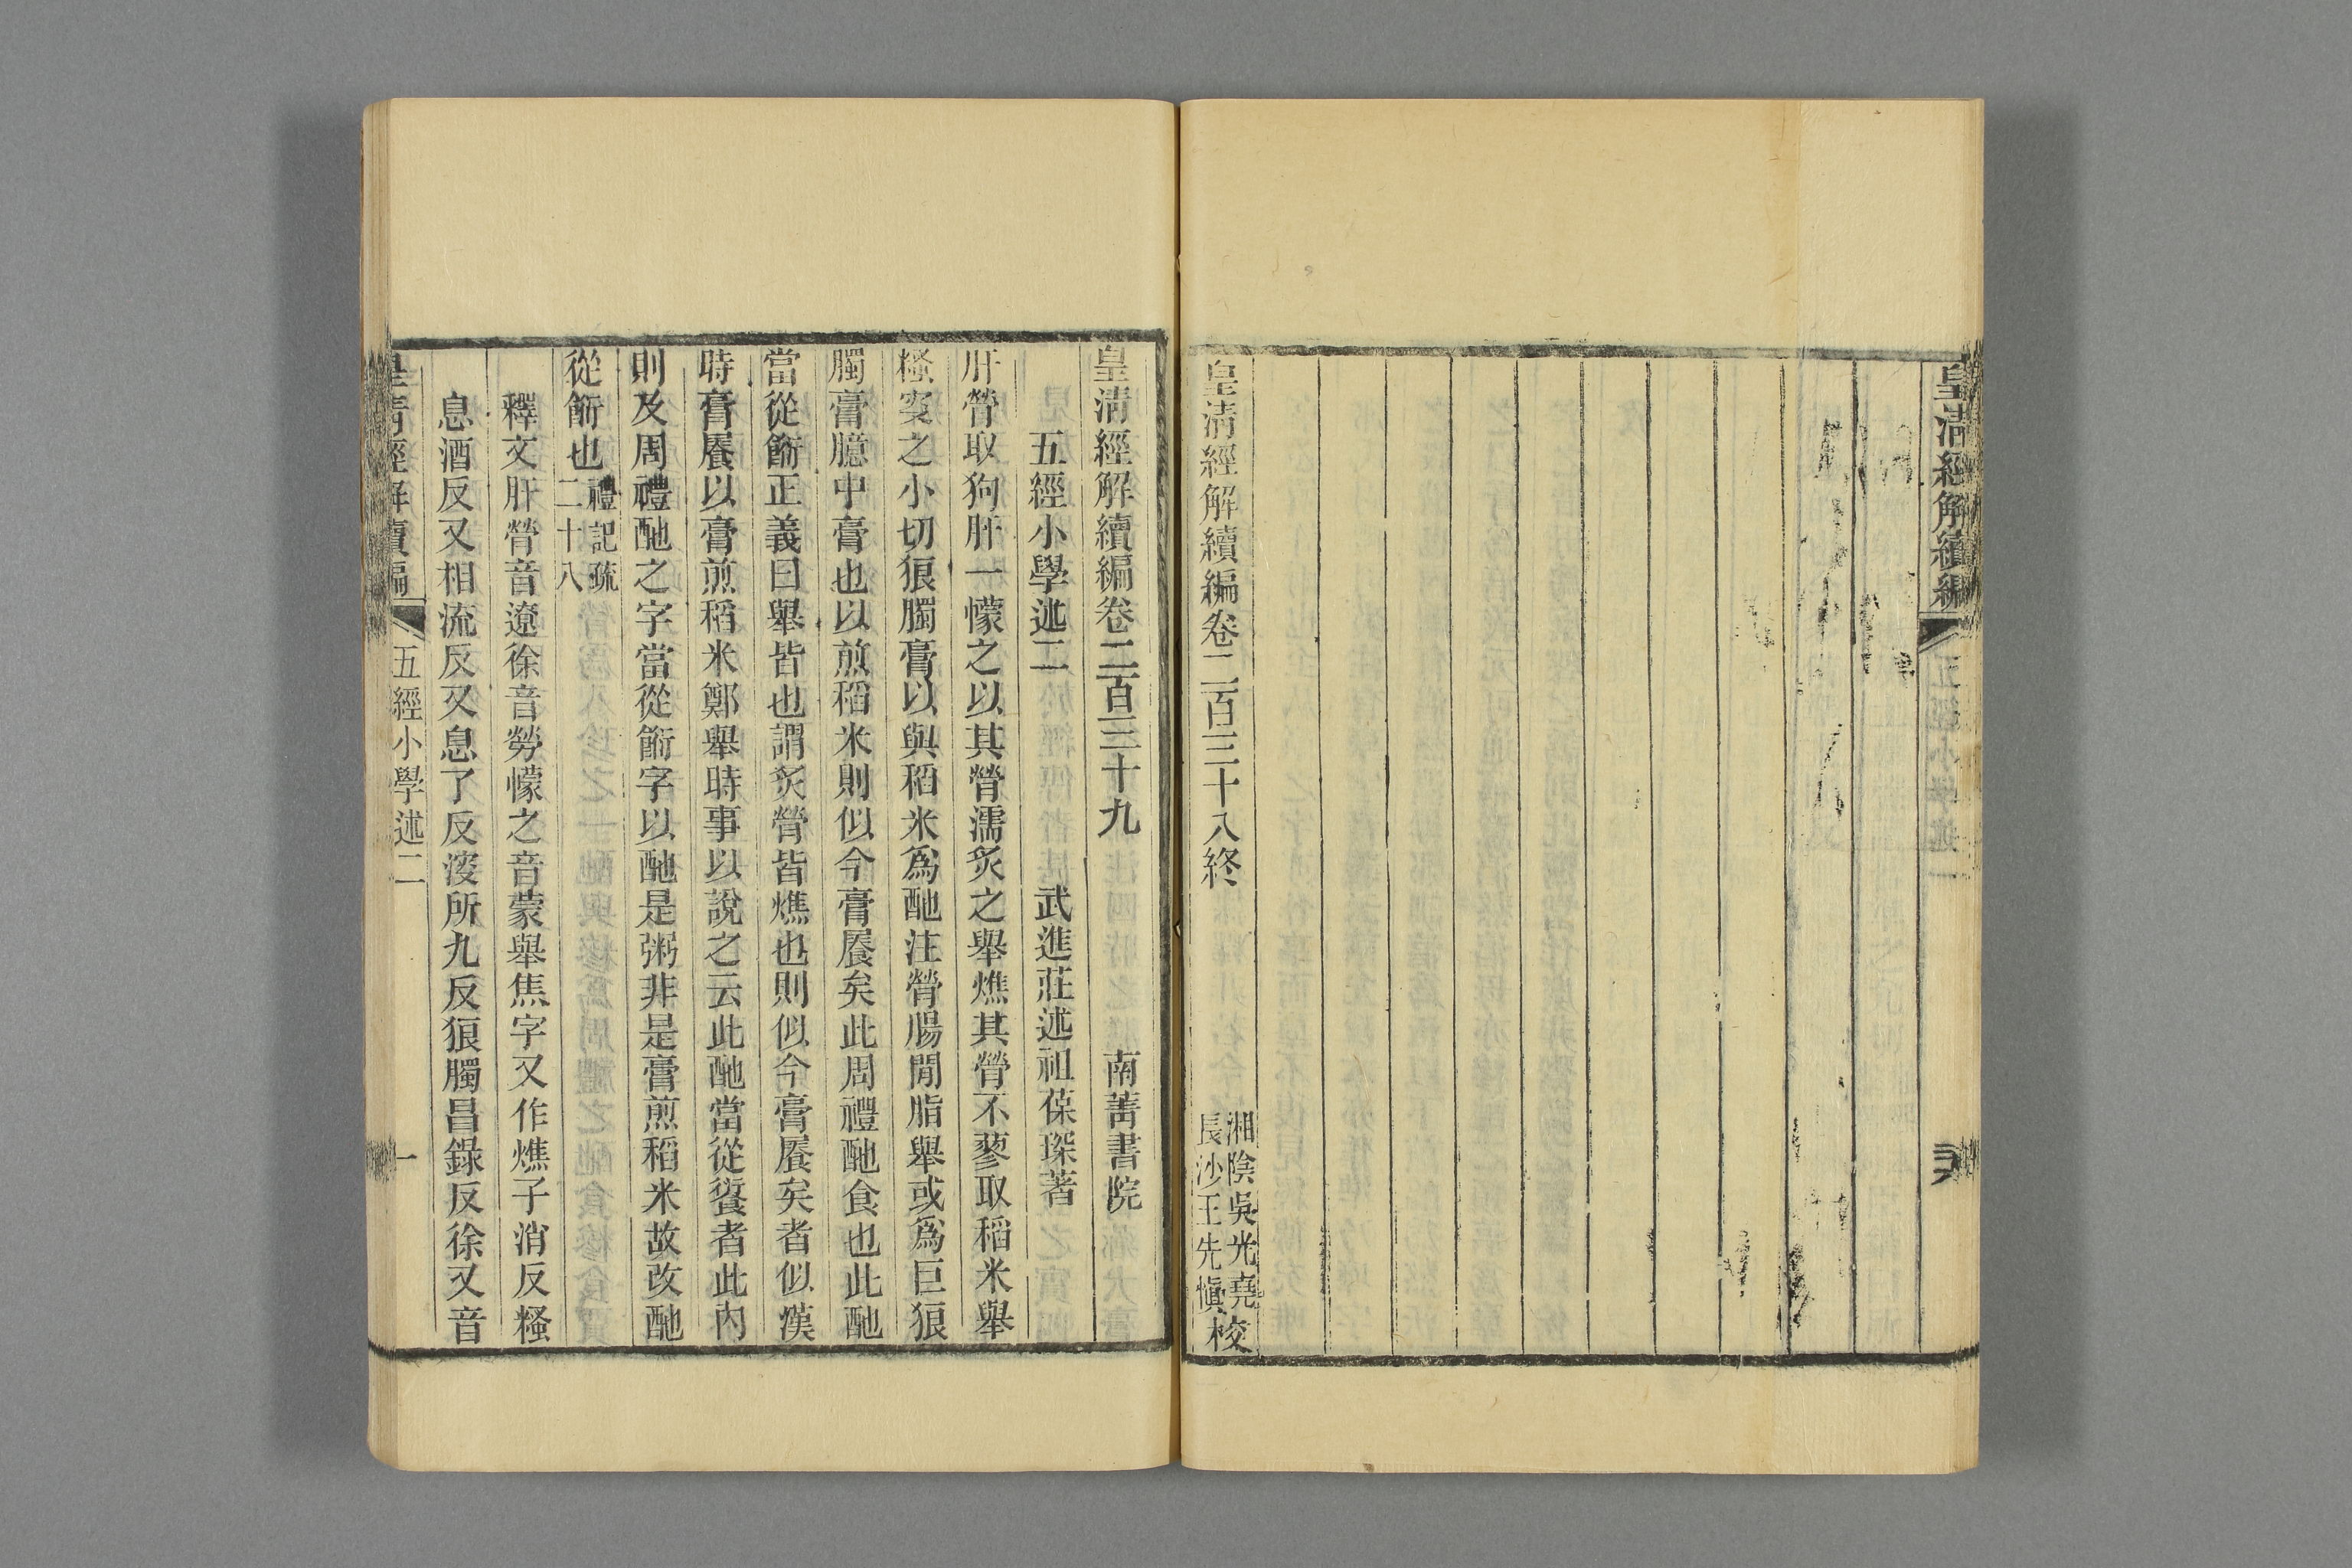 皇清經解續編
皇清經解續編卷二百三十八終
湘陰吳光堯
長沙王先愼校
皇清經解續編卷二百三十九
南菁書院
五經小學述二
武進莊述祖葆琛著
肝膋取狗肝一幪之以其膋濡炙之舉燋其膋不蓼取稻米舉
糔溲之小切狼臅膏以與稻米爲酏注膋腸閒脂舉或爲巨狼
臅膏臆中膏也以煎稻米則似今膏𩞁矣此周禮酏食也此酏
當從䬳正義曰舉皆也謂炙膋皆燋也則似今膏𩞁矣者似漢
時膏𩞁以膏煎稻米鄭舉時事以說之云此酏當從餐者此內
則及周禮酏之字當從䬳字以酏是粥非是膏煎稻米故改酏
從䬳也
禮記疏
二十八
釋文肝膋音遼徐音勞幪之音蒙舉焦字又作燋子消反糔
息酒反又相流反又息了反溲所九反狼臅昌錄反徐又音
皇清經解續編
五經小學述二
一